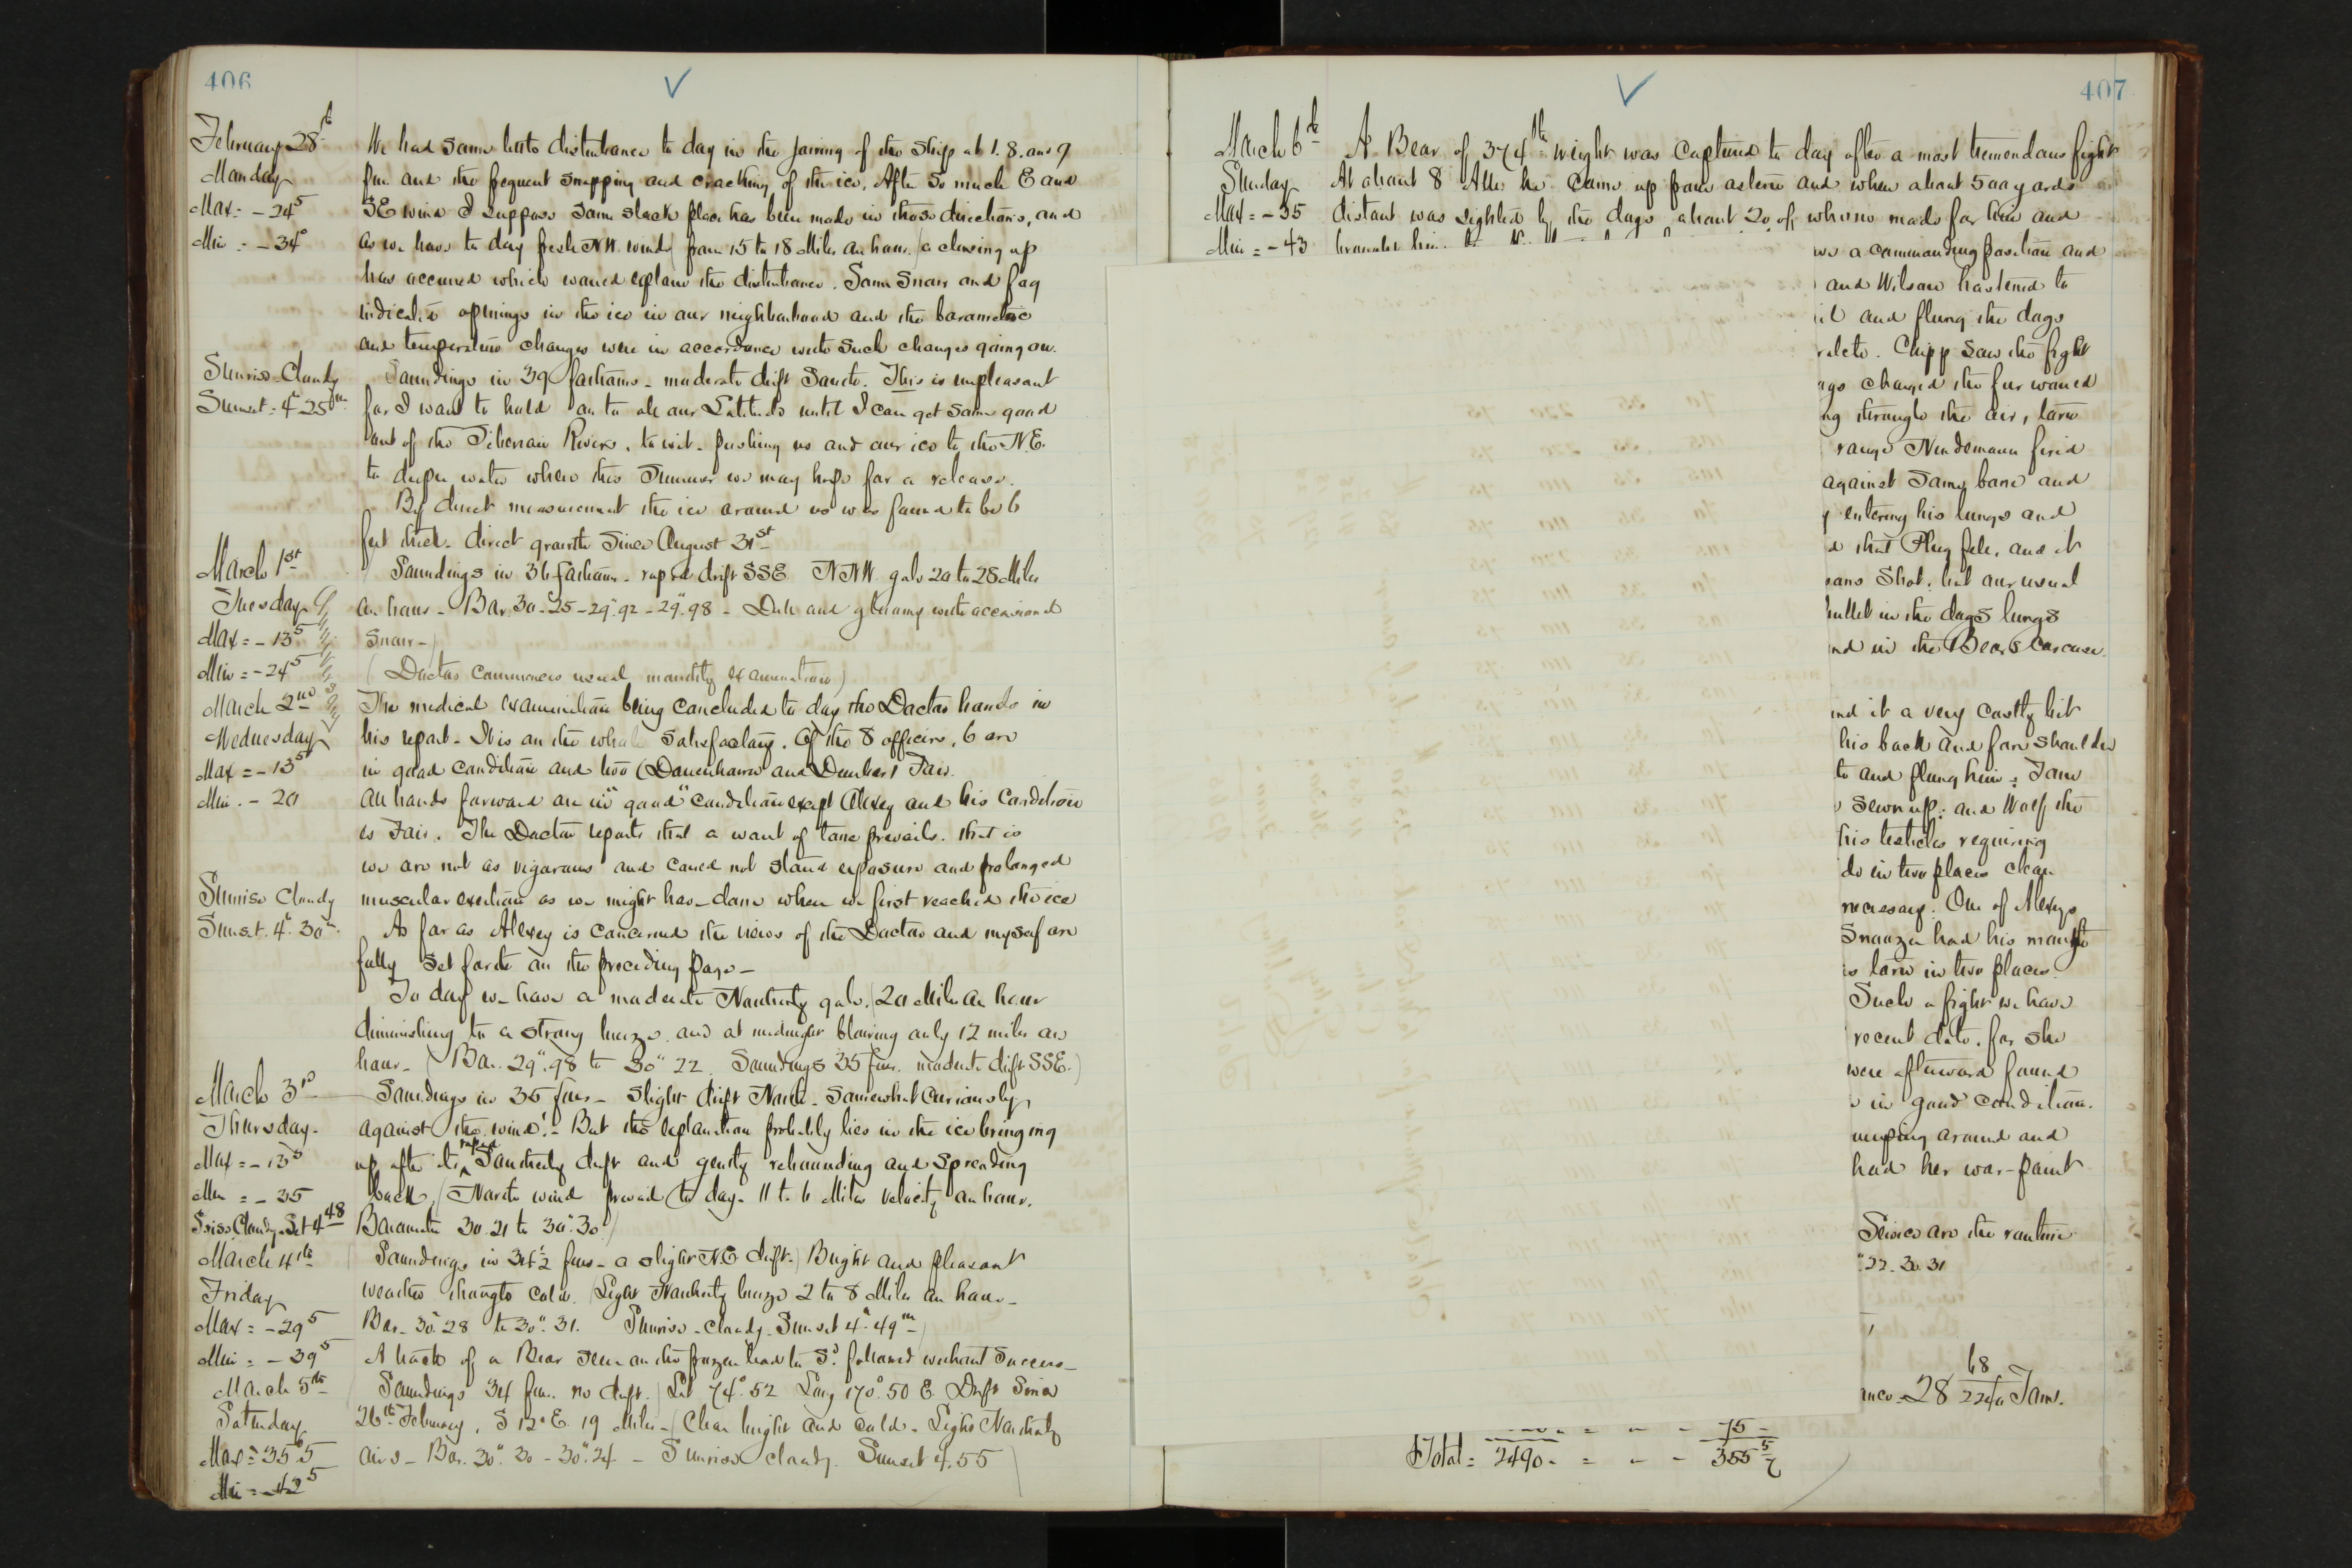 406
February 28th
Monday
Max = -24⁵
Min = -34°
We had some little disturbance to day in the jarring of the ship at 1. 8. and 9
pm and the frequent snapping and cracking of the ice. After so much E and
SE wind I suppose some slack place has been made in those directions, and
as we have to day fresh NW. wind (from 15 to 18 Miles an hour.) a closing up
has occurred which would explain the disturbance. Some snow and fog
indicate openings in the ice in our neighborhood and the barometric
and temperature changes were in accordance with such changes going on.
Sunrise Cloudy
Sunset = 4h 25m
Soundings in 39 fathoms - moderate drift South. This is unpleasant
for I want to hold on to all our Latitude until I can get some good
out of the Siberian Rivers, to wit - pushing us and our ice to the N.E.
to deeper water where this Summer we may hope for a release.
By direct measurement the ice around us was found to be 6
feet thick - direct growth since August 31st
March 1st
Tuesday
Max = -13⁵
Min = -24⁵
Soundings in 36 fathoms - rapid drift SSE NNW. gale 20 to 28 Miles
an hour - Bar. 30".25 - 29".92 - 29".98 - Dull and gloomy with occasional
snow -
(Doctor commences usual monthly examination)
March 2nd
Wednesday
Max = -13⁵
Min. - 20
The medical examination being concluded to day the Doctor hands in
his report - It is on the whole satisfactory. Of the 8 officers, 6 are
in good condition and two (Danenhower and Dunbar) Fair.
All hands forward are in "good" condition except Alexey and his condition
is Fair. The Doctor reports that a want of tone prevails. that is
we are not as vigorous and could not stand exposure and prolonged
muscular exertion as we might have done when we first reached the ice
Sunrise Cloudy
Sunset. 4h 30m.
As far as Alexey is concerned the views of the Doctor and myself are
fully set forth on the preceding page -
To day we have a moderate Northerly gale. (20 Miles an hour
diminishing to a strong breeze and at midnight blowing only 12 miles an
hour - (Bar. 29".98 to 30".22. Soundings 35 fms. moderate drift SSE.)
March 3rd
Thursday.
Max = -13⁵
Min = -35
Srise Cloudy - Set 4 48
Soundings in 35 fms - slight drift North - Somewhat curiously
against the wind! - But the explanation probably lies in the ice bringing
up after its rapid Southerly drift and gently rebounding and spreading
back. (North wind prevail to day - 11 to 6 Miles velocity an hour.
Barometer 30.21 to 30".30)
March 4th
Friday
Max = -29⁵
Min = -39⁵
Soundings in 34½ fms - a slight N.E drift.) Bright and pleasant
weather though cold. (Light Northerly breeze 2 to 8 Miles an hour -
Bar - 30".28 to 30".31. Sunrise - cloudy - Sunset 4h 49m -)
A track of a Bear seen on the frozen lead to Sd followed without success -
March 5th
Saturday
Max = 35.5
Min = -42⁵
Soundings 34 fms. no drift.) Lat 74°.52 Long 170°.50 E. Drift since
26th February, S 12° E. 19 Miles - (Clear bright and cold - Light Northerly
airs - Bar. 30".30 - 30".24 - Sunrise cloudy. Sunset 4.55
407
March 6th
Sunday
Max = -35
Min = -43
A Bear of 374 lb weight was captured to day after a most tremendous fight
At about 8 AM he came up from astern and when about 500 yards
distant was sighted by the dogs about 20 of whom made for him and
brought him
a commanding position and
and Wilson hastened to
and flung the dogs
Chipp saw the fight
charged the fur would
through the air, torn
range Nindemann fired
against some bone and
entering his lungs and
that Plug fell, and it
shot, but our usual
bullet in the dogs lungs
in the Bears carcase.
it a very costly bit
his back and fore shoulder
to and flung him; Tom
sewn up; and Wolf, the
his testicles requiring
in two places clean
necessary. One of Alexeys
Snoozer had his mouth
is torn in two places.
Such a fight we have
recent date, for she
were afterward found
in good condition.
around and
had her war-paint
Series are the routine
".22 - 30.31
28 68/2240 Tons.
75 -
Total = 2490 - = - - 355 5/7